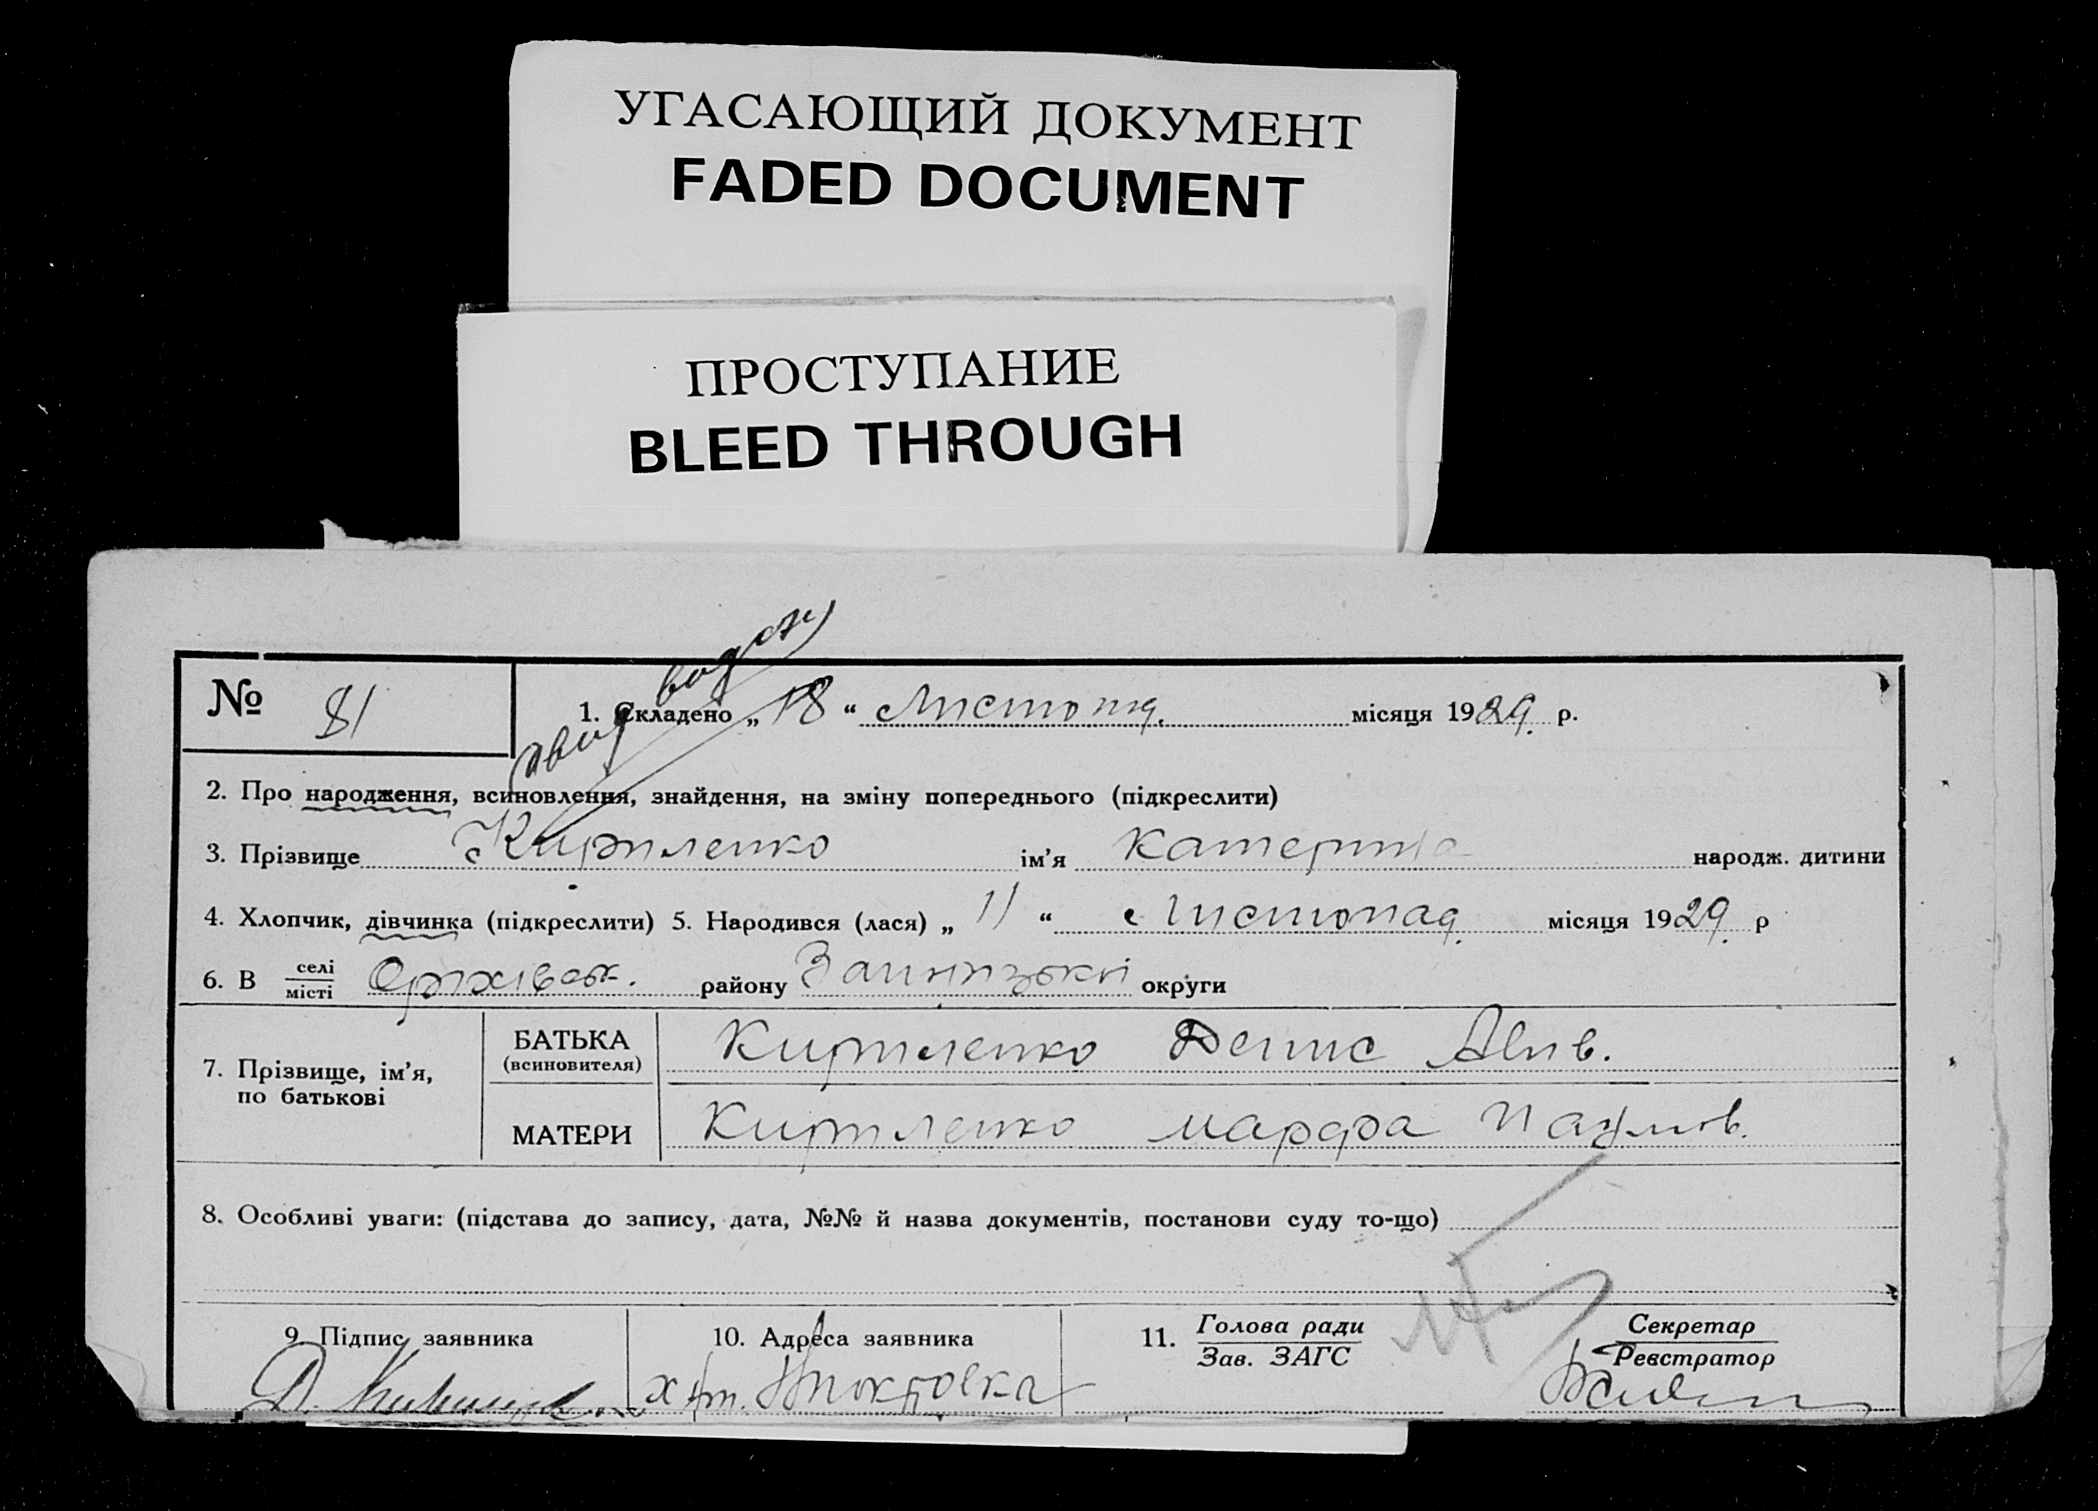 УГАСАЮЩИЙ ДОКУМЕНТ
FADED DOCUMENT
ПРОСТУПАНИЕ
BLEED THROUGH
№ 81
1. Складено „ 18 “ Листопад. місяця 1929 р.
2. Про народження, всиновлення, знайдення, на зміну попереднього (підкреслити)
3. Прізвище Кириленко ім'я Катерина народж. дитини
4. Хлопчик, дівчинка (підкреслити) 5. Народився (лася) „ 11 “ Листопад. місяця 1929 р
6. В селі
місті Оріхівськ. району округи
7. Прізвище, ім'я,
по батькові
БАТЬКА
(всиновителя)
Кириленко Денис
МАТЕРИ Кириленко Марфа
8. Особливі уваги: (підстава до запису, дата, №№ й назва документів, постанови суду то-що)
9. Підпис заявника 10. Адреса заявника 11. Голова ради
Зав. ЗАГС
Секретар
Реєстратор
Д.